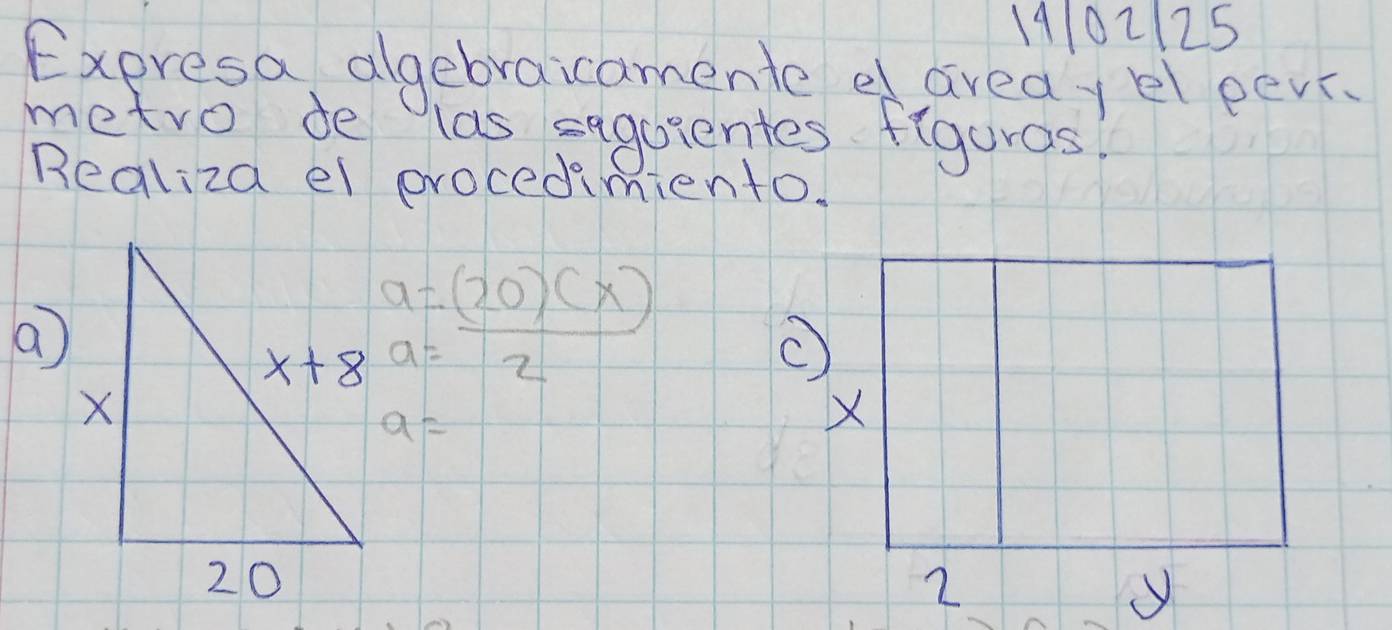 14/02/25
Expresa algebraicamente el área y el perí-
metro de las siguientes figuras.
Realiza el procedimiento.
a)
x
x+8
20
a=(20)(x)
a= 2
a=
c)
x
2
y